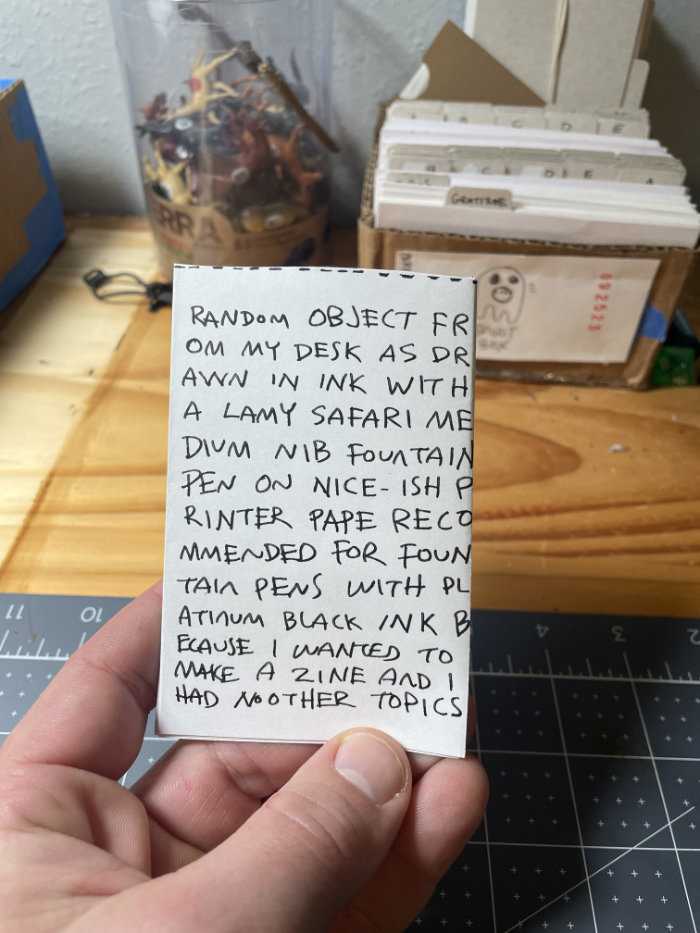 RRA
A B C D E
B C D E A
GRATITUDE
092523
GHOST
BOX
RANDOM OBJECT FR
OM MY DESK AS DR
AWN IN INK WITH
A LAMY SAFARI ME
DIUM NIB FOUNTAIN
PEN ON NICE-ISH P
RINTER PAPE RECO
MMENDED FOR FOUN
TAIN PENS WITH PL
ATINUM BLACK INK B
ECAUSE I WANTED TO
MAKE A ZINE AND I
HAD NO OTHER TOPICS
11 10 4 3 2